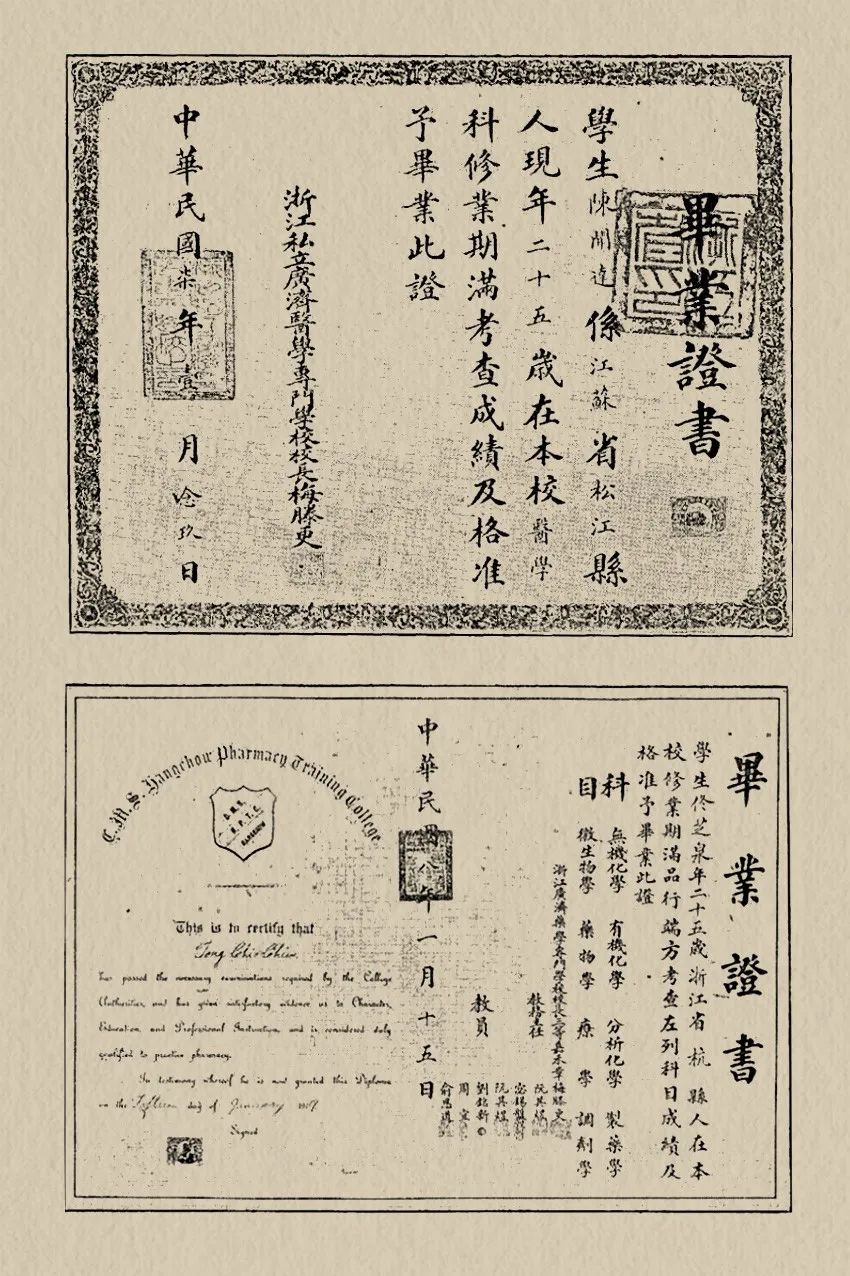 畢業證書
學生陳開達係江蘇省松江縣
人現年二十五歲在本校醫學
科修業期滿考查成績及格准
予畢業此證
浙江私立廣濟醫學專門學校校長梅滕更
中華民國柒年壹月念玖日
畢業證書
學生佟芝泉年二十五歲浙江省杭縣人在本
校修業期滿品行端方考查左列科目成績及
格准予畢業此證
科 無機化學 有機化學 分析化學 製藥學
目 微生物學 藥物學 療學 調劑學
浙江廣濟藥學專門學校校長三等嘉禾章梅滕更
教務主任 阮其煜
教員
阮其煜
劉銘新
周宣
俞恩道
中華民國八年一月十五日
C.M.S. Hangchow Pharmacy Training College
This is to certify that
has passed the necessary examinations required by the College
Authorities, and has given satisfactory evidence as to Character,
Education, and Professional Instruction, and is considered duly
qualified to practice pharmacy.
In testimony whereof he is now granted this Diploma
on the Fifteen day of January 1919
Signed